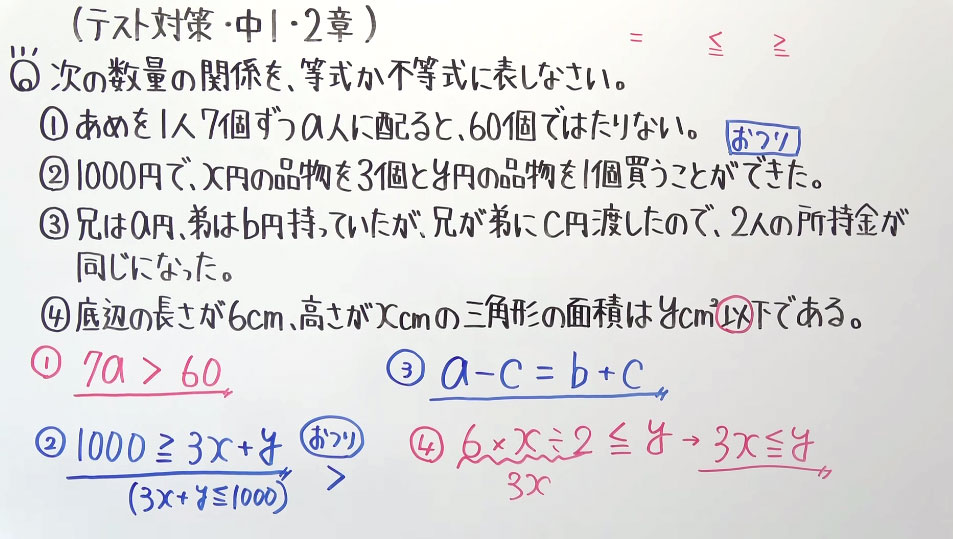 (テスト対策・中1・2章)
= ≦ ≧
Q 次の数量の関係を、等式か不等式に表しなさい。
①あめを1人7個ずつa人に配ると、60個ではたりない。
おつり
②1000円で、x円の品物を3個とy円の品物を1個買うことができた。
③兄はa円、弟はb円持っていたが、兄が弟にC円渡したので、2人の所持金が
同じになった。
④底辺の長さが6cm、高さがxcmの三角形の面積はycm²以下である。
① 7a > 60
③ a-c = b+c
② 1000 ≧ 3x+y おつり
(3x+y≦1000) >
④ 6×x÷2 ≦ y → 3x≦y
3x